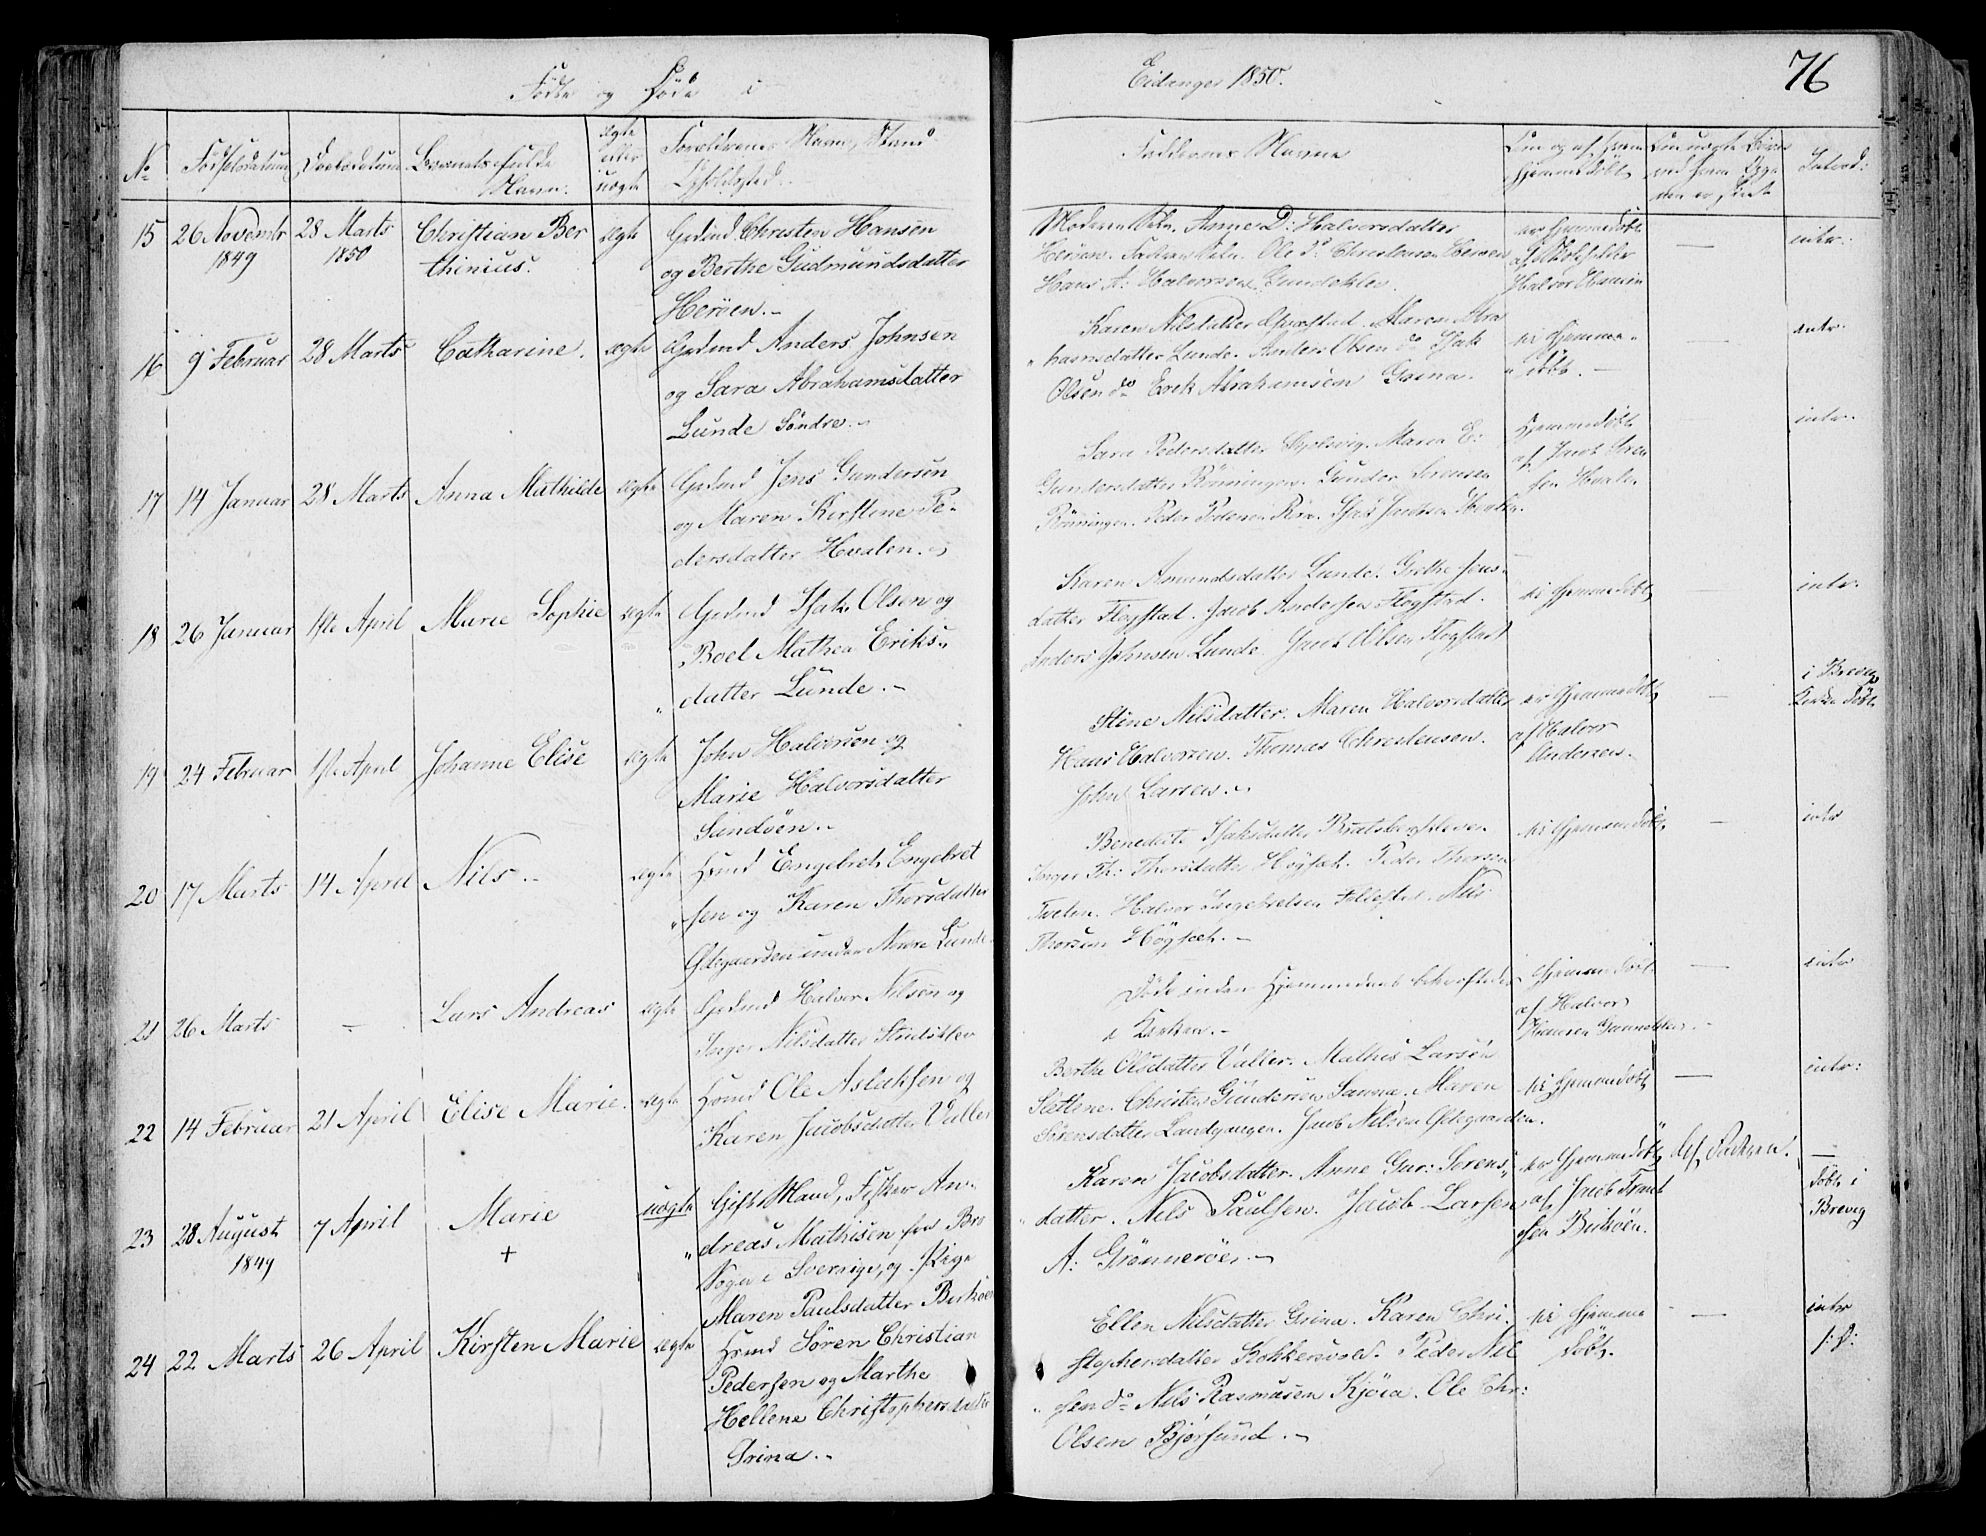 Fødte og Døde i
Eidanger 1850.
76
No
Fødselsdatum
Daabsdatum
Barnets fulde
Navn.
ægte
eller
uægte
Forældrenes Navn, Stand
Opholdssted.
Faddernes Navne
Hjemmedøbt
Introd:
15
26 Novembr
1849
28 Marts
1850
Christian Ber
thinius.
ægte
Grdmd Christen Hansen
og Berthe Gudmundsdatter
Herøen.-
Moderen Selv. Anne D: Halvorsdatter
Herøen. Faderen Selv. Ole do: Christensen Herøen
Hans A: Halvorsen Gundeklev.
er hjemmedøbt
af Skoleholder
Halvor Hansen
—
intr:
16
9 Februar
28 Marts
Catharine.
ægte
Grdmd Anders Johnsen
og Sara Abrahamsdatter
Lunde Søndre.-
Karen Nilsdatter Maren Abra
hamsdatter Lunde. Anders Olsen do Isak
Olsen do Erek Abrahamsen Grina.
ei hjemme
døbt.-
—
intr.
17
14 Januar
28 Marts
Anna Mathilde
ægte
Grdmd Jens Gundersen
og Maren Kirstine Pe-
dersdatter Hvalen.
Sara Pedersdatter Maren E:
Gundersdatter Rønningen. Gunder Sørensen
Rønningen. Peder Pedersen Røra. Isak Jacobsen Hvalen.
hjemmedøbt
af Jacob
sen Hvalen
intr.
18
26 Januar
1ste April
Marie Sophie
ægte
Grdmd Isak Olsen og
Boel Mathea Eriks-
datter Lunde.-
Karen Amundsdatter Lunde. Grethe Jens-
datter Flogstad. Jacob Andersen Flogstad.
Anders Johnsen Lunde. Jacob Olsen Flogstad
ei hjemmedøbt
intr.
19
24 Februar
1ste April
Johanne Elise
ægte
John Halversen og
Marie Halvorsdatter
Sandøen.-
Stine Nilsdatter. Maren Halvorsdatter
Hans Halvorsen. Thomas Christensen.
John Larsen.-
er hjemmedøbt
af Halvor
Andersen.
—
i Brevig
Kirke døbt
20
17 Marts
14 April
Nils.-
ægte
Hsmd Engebret Engebret
sen og Karen Thorsdatter
Østegaarden under Nedre Lunde.
Benedicte Isaksdatter Bratsbergkleven
Inger Th: Thorsdatter Høyset. Peder Thorsen
Tveten. Halvor Ingebretsen Nils
Thorsen Høyset.-
ei hjemmedøbt.
—
intr
21
26 Marts
—
Lars Andreas
ægte
Grdmd Halvor Nilsen og
Inger Nilsdatter
Døde inden Hjemmedaab bekræftedes
i Kirken.-
hjemmedøbt
af Halvor
Hansen
—
intr
22
14 Februar
21 April
Elise Marie.
ægte
Hsmd Ole Aslaksen og
Karen Jacobsdatter Valler
Berthe Olsdatter Valler. Mathis Larsen
Slettene. Christen Gundersen Sanna. Maren
Sørensdatter Landgangen. Jacob Nilsen Østegaarden.
ei hjemmedøbt
—
intr:
23
28 August
1849
7 April
Marie
+
uægte
Gift Mand, Fisker An-
dreas Mathisen fra Bro
Sogn i Sverrige, og Pige
Maren Paulsdatter Birkøen
Karen Jacobsdatter. Anne Gur: Sørens-
datter. Nils Paulsen. Jacob Larsen
A: Grønnerøe.-
er hjemmedøbt
af Jacob
sen Birkøen.
Af Faderen.
—
døbt i
Brevig
24
22 Marts
26 April
Kirsten Marie
ægte
Hsmd Søren Christian
Pedersen og Marthe
Hellene Christophersdatter
Grina.-
Ellen Nilsdatter Grina. Karen Chri-
stophersdatter Kokkersvold. Peder Nil
sen do Nils Rasmusen Kjøra. Ole Chr:
Olsen Bjørsund.-
ei hjemme
døbt.
—
intr